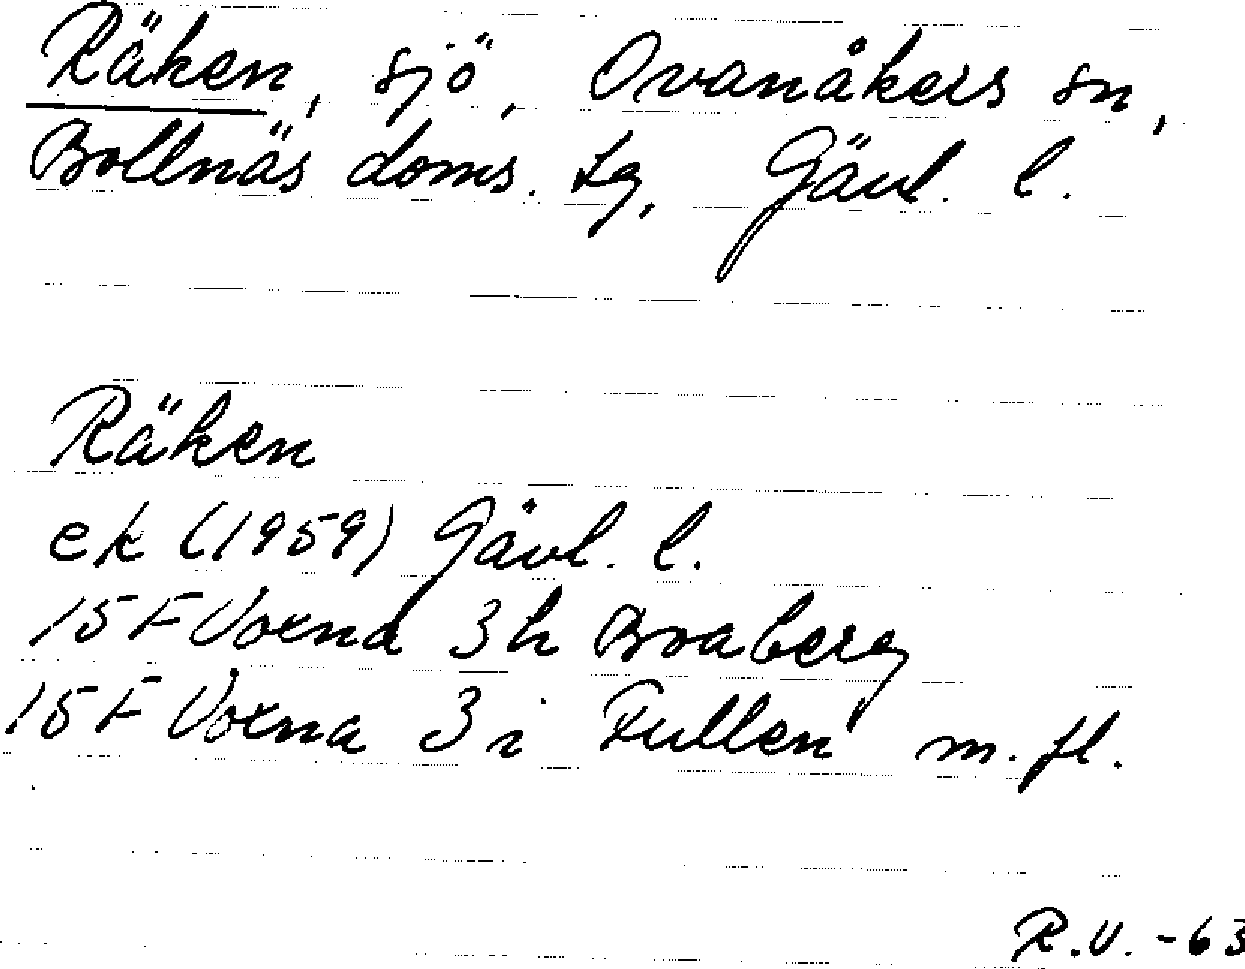 Räken, sjö, Ovanåkers sn,
Bollnäs doms. tg, Gävl. l.
Räken
ek (1959) Gävl. l.
15 F Voxna 3h Broaberg
15 F Voxna 3i Fullen m. fl.
R.V. -63